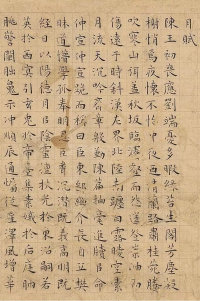 月賦
陳王初喪應劉端憂多暇綠苔生閣芳塵凝
榭悄焉疚懷不怡中夜乃清蘭路肅桂苑騰
吹寒山弭蓋秋坂臨濬壑而怨遙登崇岫而
傷遠于時斜漢左界北陸南躔白露曖空素
月流天沉吟齊章殷勤陳篇抽毫進牘以命
仲宣仲宣跪而稱曰臣東鄙幽介長自丘樊
昧道懵學孤奉明恩臣聞沉潛既義高明既
經日以陽德月以陰靈擅扶光於東沼嗣若
英於西冥引玄兔於帝臺集素娥於后庭朒
朓警闕朏魄示沖順辰通燭從星澤風增華